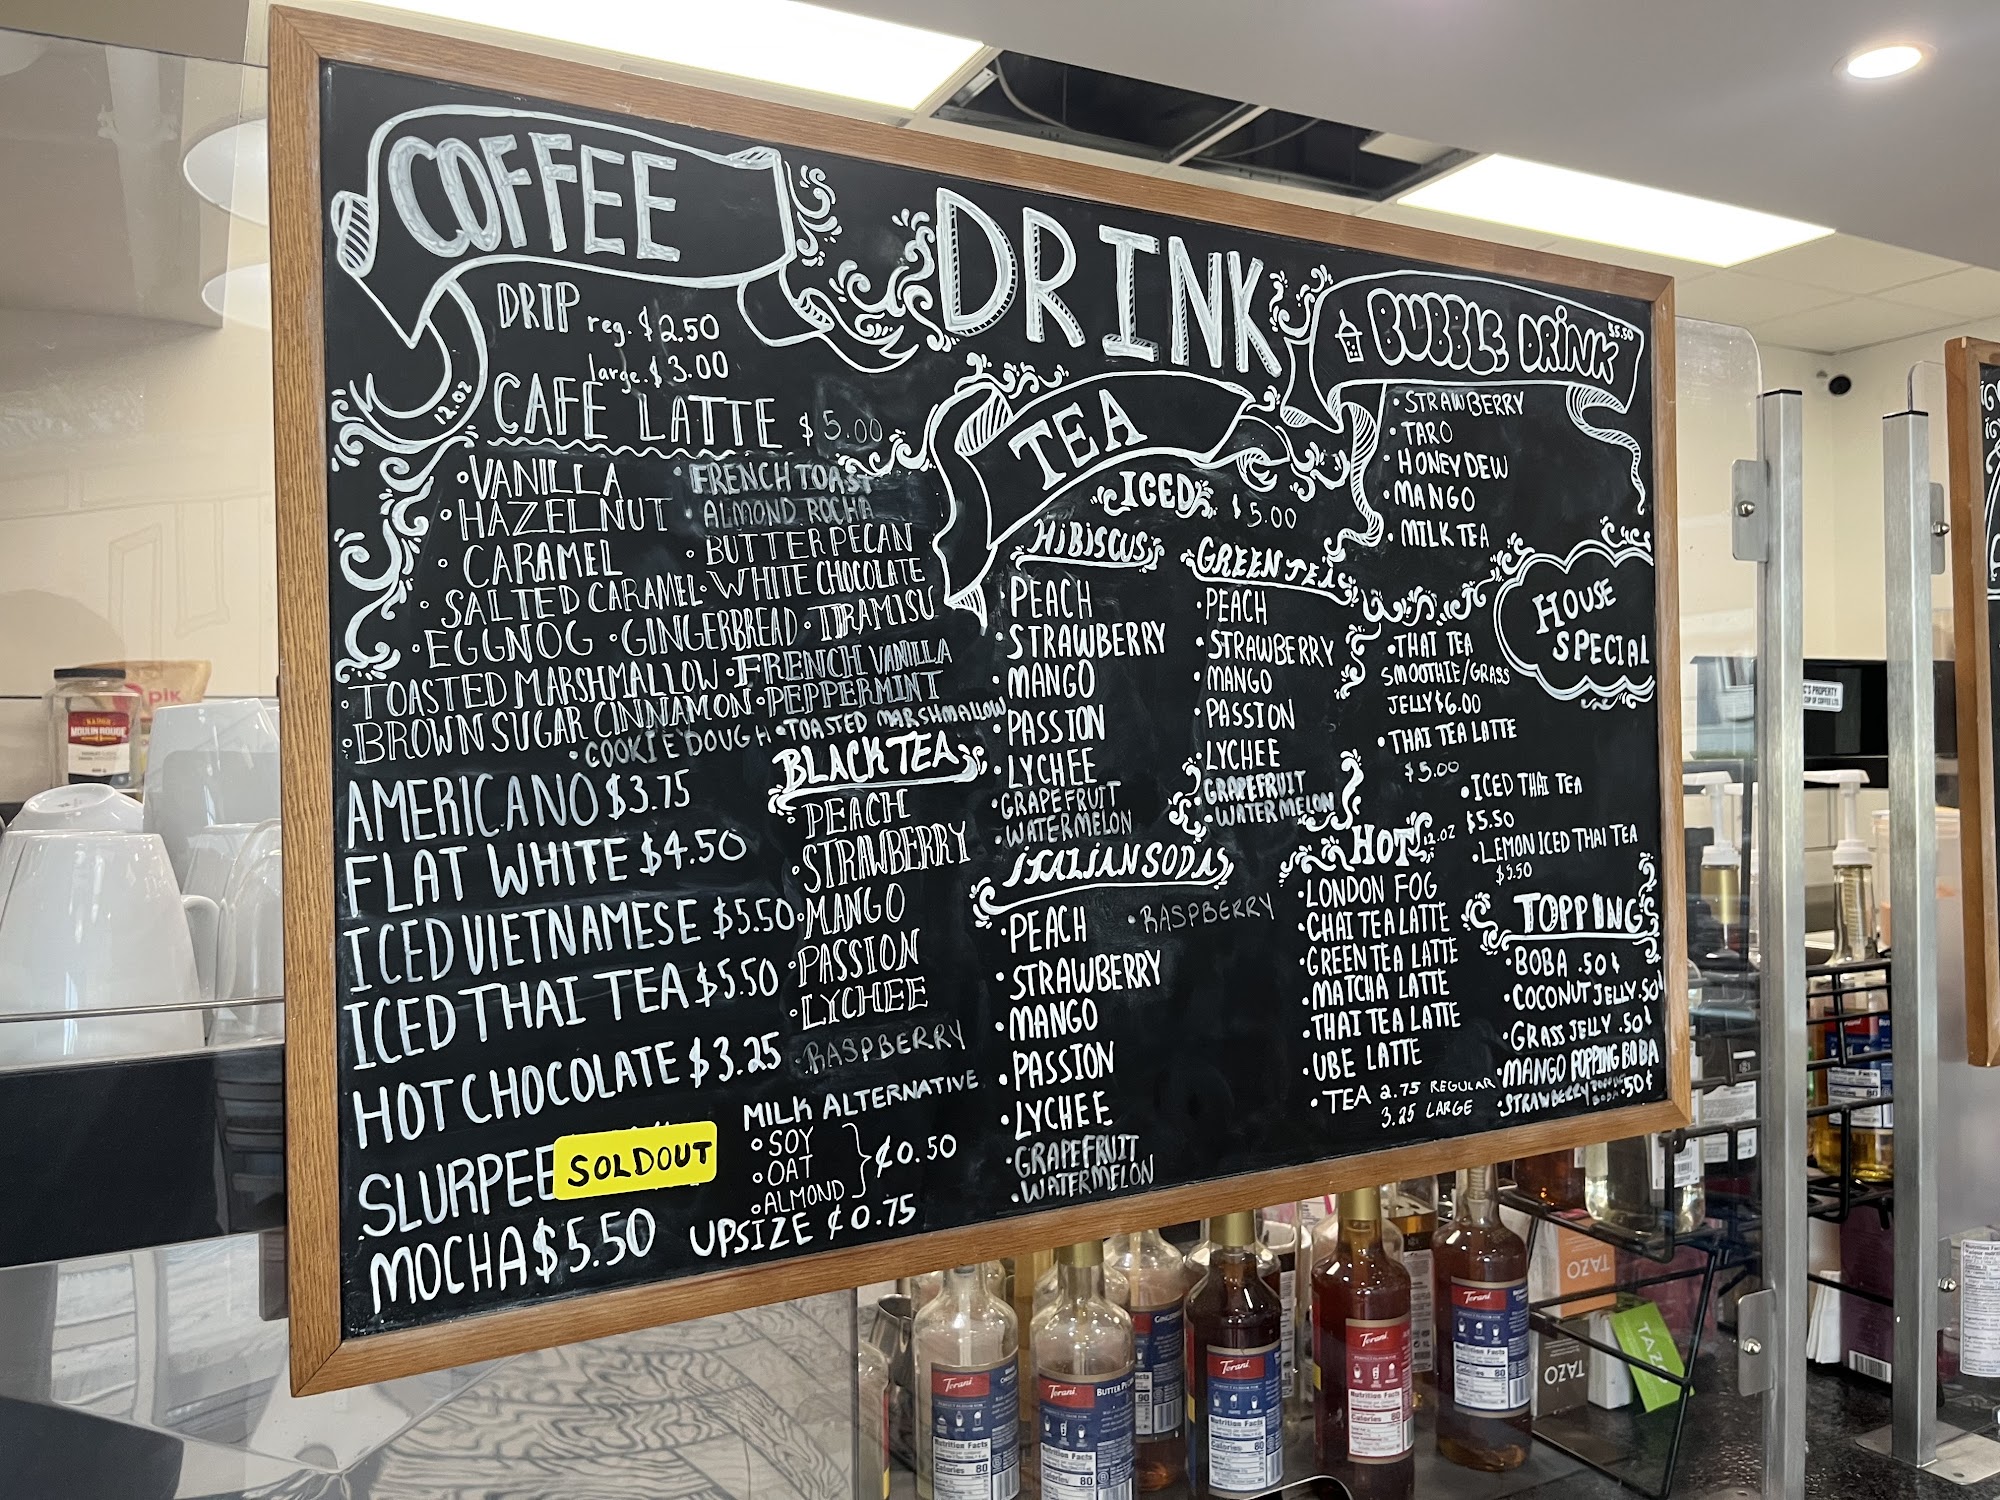 COFFEE
12.oz
DRIP reg. $2.50
large. $3.00
CAFE LATTE $5.00
•VANILLA •FRENCH TOAST
•HAZELNUT •ALMOND ROCHA
•CARAMEL •BUTTER PECAN
•SALTED CARAMEL •WHITE CHOCOLATE
•EGGNOG •GINGERBREAD •TIRAMISU
•TOASTED MARSHMALLOW •FRENCH VANILLA
•BROWN SUGAR CINNAMON •PEPPERMINT
•COOKIE DOUGH •TOASTED MARSHMALLOW
AMERICANO $3.75
FLAT WHITE $4.50
ICED VIETNAMESE $5.50
ICED THAI TEA $5.50
HOT CHOCOLATE $3.25
SLURPEE SOLDOUT
MOCHA $5.50
BLACK TEA
•PEACH
•STRAWBERRY
•MANGO
•PASSION
•LYCHEE
•RASPBERRY
MILK ALTERNATIVE
•SOY
•OAT
•ALMOND
¢0.50
UPSIZE ¢0.75
DRINK
TEA
ICED $5.00
HIBISCUS
•PEACH
•STRAWBERRY
•MANGO
•PASSION
•LYCHEE
•GRAPEFRUIT
•WATERMELON
GREEN TEA
•PEACH
•STRAWBERRY
•MANGO
•PASSION
•LYCHEE
•GRAPEFRUIT
•WATERMELON
ITALIAN SODAS
•PEACH •RASPBERRY
•STRAWBERRY
•MANGO
•PASSION
•LYCHEE
•GRAPEFRUIT
•WATERMELON
HOT 12.oz
•LONDON FOG
•CHAI TEA LATTE
•GREEN TEA LATTE
•MATCHA LATTE
•THAI TEA LATTE
•UBE LATTE
•TEA 2.75 REGULAR
3.25 LARGE
BUBBLE DRINK $5.50
•STRAWBERRY
•TARO
•HONEYDEW
•MANGO
•MILK TEA
HOUSE
SPECIAL
•THAI TEA
SMOOTHIE/GRASS
JELLY $6.00
•THAI TEA LATTE
$5.00
•ICED THAI TEA
$5.50
•LEMON ICED THAI TEA
$5.50
TOPPING
•BOBA .50¢
•COCONUT JELLY .50¢
•GRASS JELLY .50¢
•MANGO POPPING BOBA
•STRAWBERRY POPPING BOBA .50¢
MOULIN ROUGE
pik
Torani
Nutrition Facts
Calories 80
Torani
BUTTER PECAN
Nutrition Facts
Calories 80
90
Torani
Nutrition Facts
Calories 80
Torani
Nutrition Facts
Calories
Torani
Nutrition Facts
Calories 80
TAZO
TAZO
TAZO
PROPERTY
CUP OF COFFEE LTD.